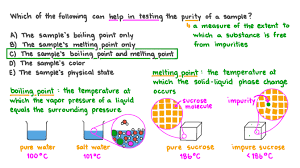 Which of the following can help in testing the purity of a sample?
↳ a measure of the extent to
which a substance is free
from impurities
A) The sample's boiling point only
B) The sample's melting point only
C) The sample's boiling point and melting point
D) The sample's color
E) The sample's physical state
melting point : the temperature at
which the solid-liquid phase change
occurs
boiling point : the temperature at
which the vapor pressure of a liquid
equals the surrounding pressure
sucrose
molecule
impurity
pure water
100°C
salt water
101°C
pure sucrose
186°C
impure sucrose
<186°C